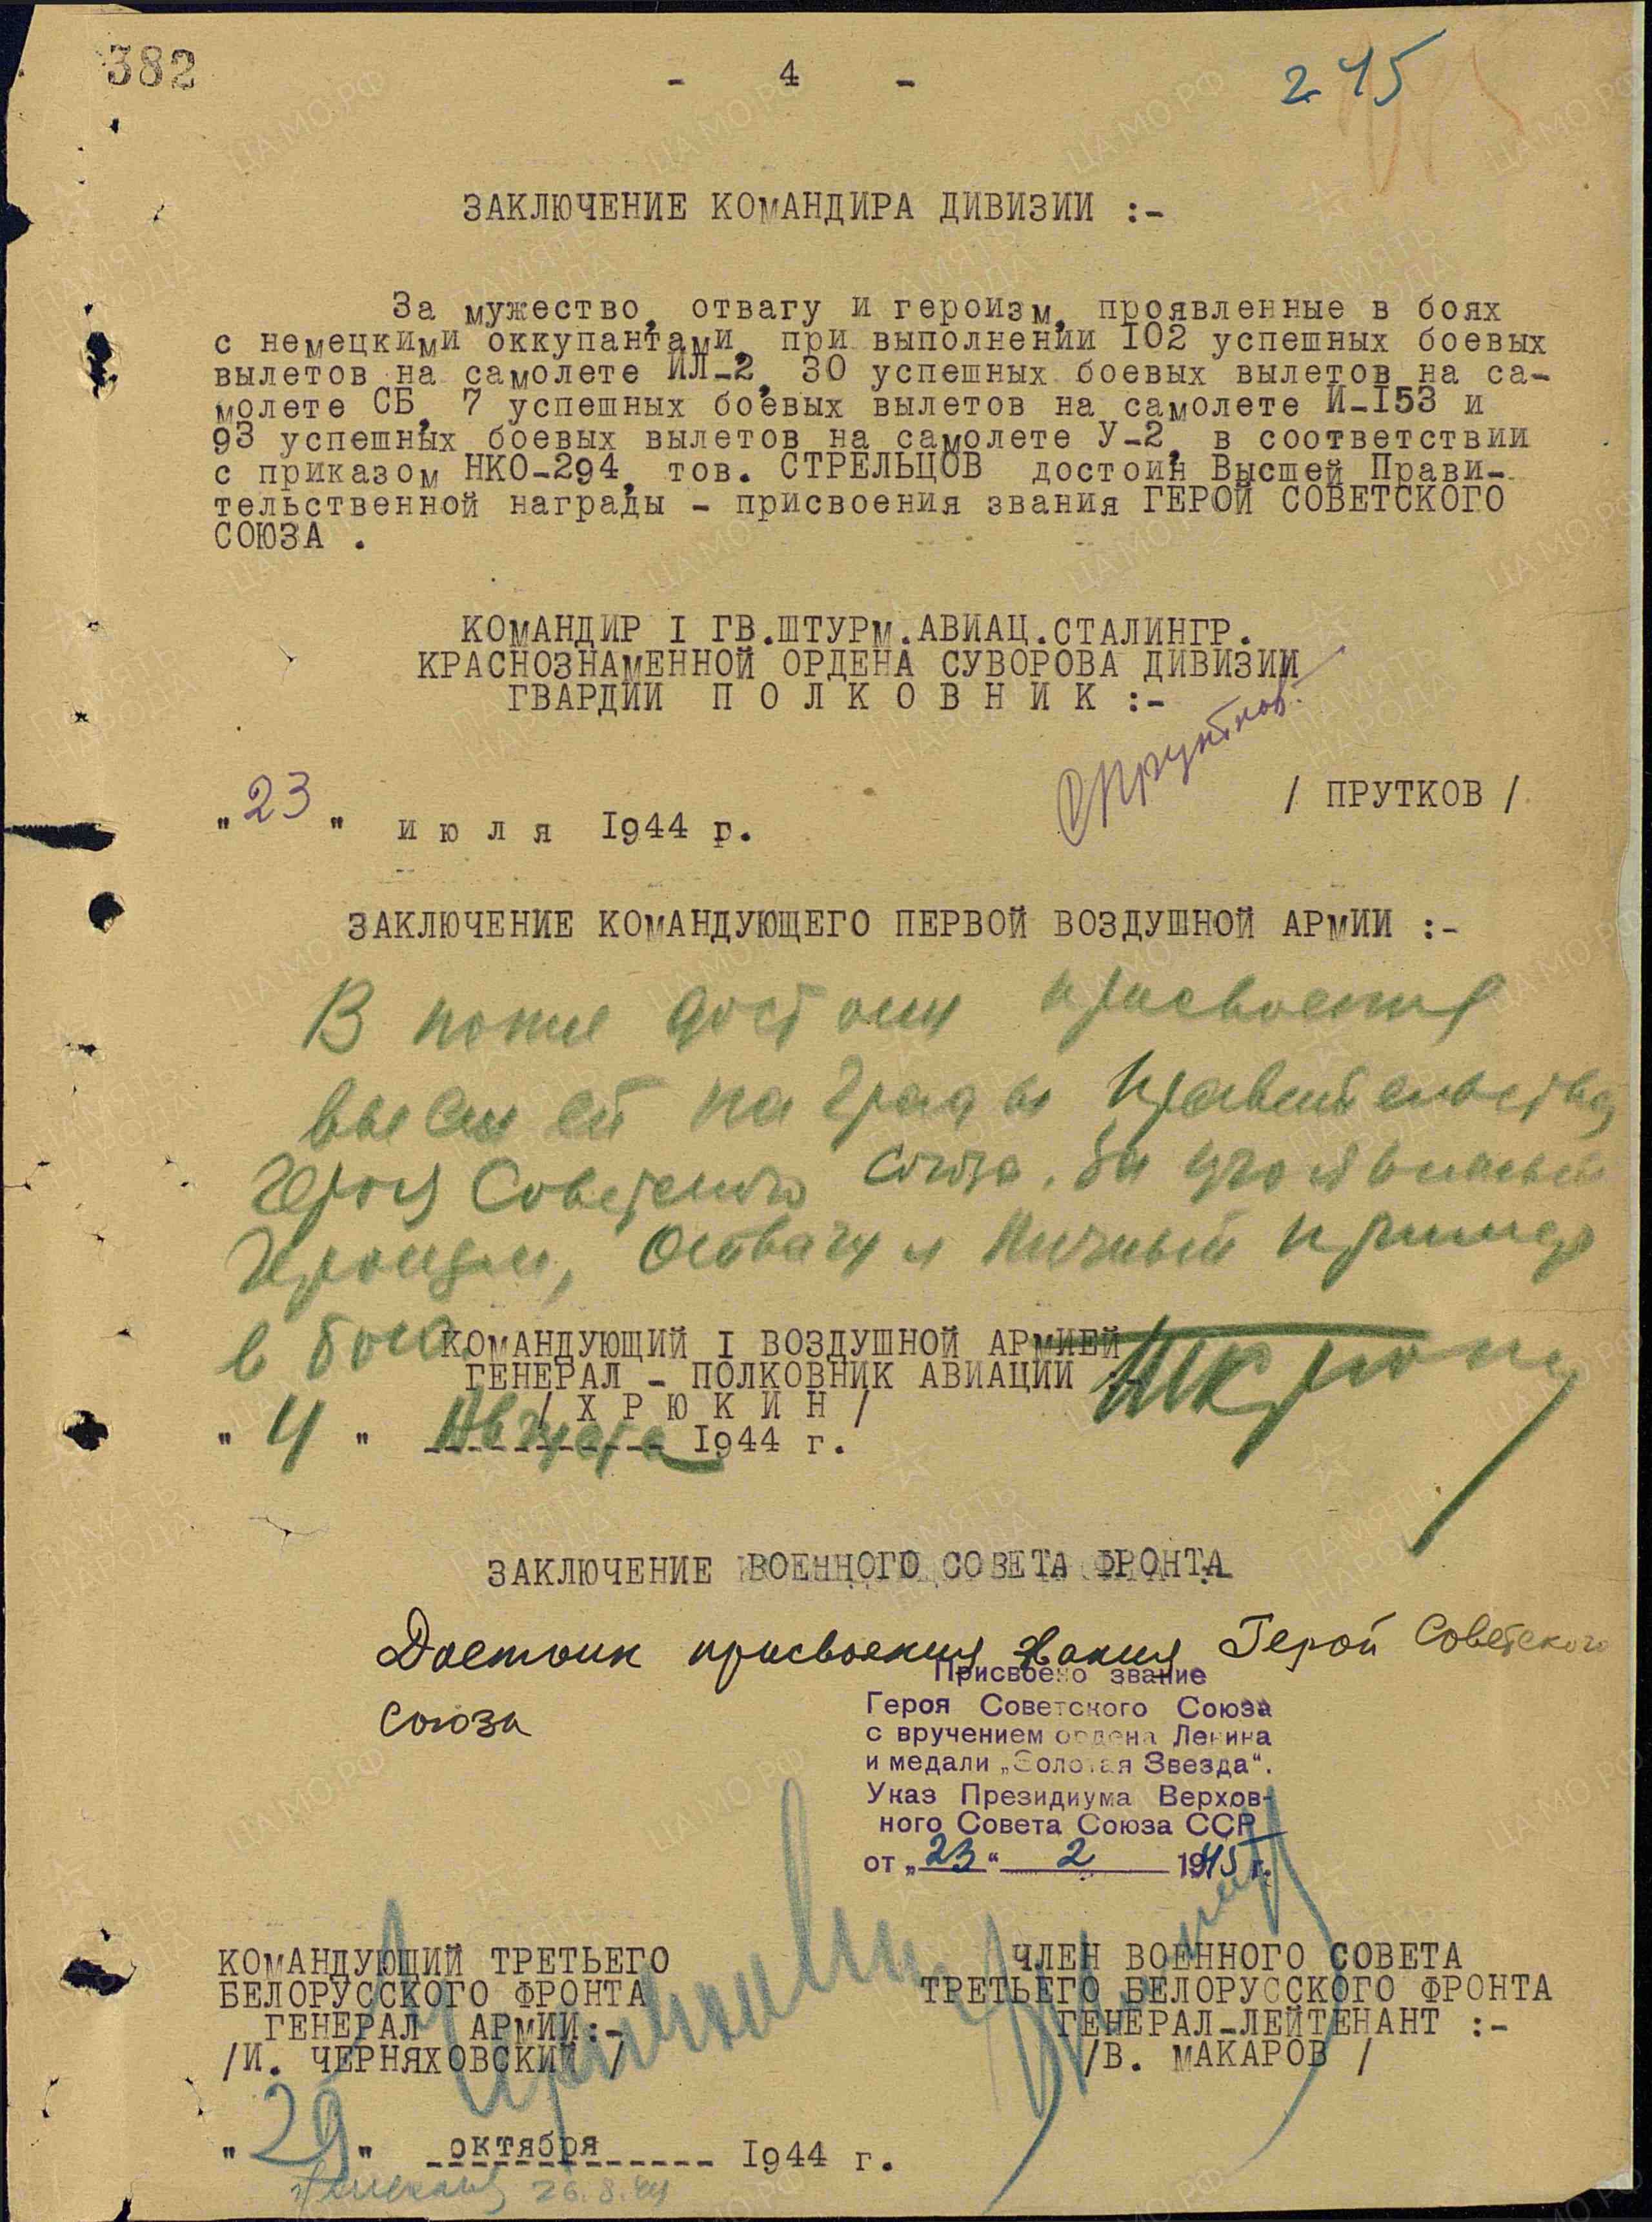 382
- 4 -
245
ЗАКЛЮЧЕНИЕ КОМАНДИРА ДИВИЗИИ :-
За мужество, отвагу и героизм, проявленные в боях
с немецкими оккупантами, при выполнении I02 успешных боевых
вылетов на самолете ИЛ-2, 30 успешных боевых вылетов на са-
молете СБ, 7 успешных боевых вылетов на самолете И-I53 и
93 успешных боевых вылетов на самолете У-2, в соответствии
с приказом НКО-294, тов. СТРЕЛЬЦОВ достоин Высшей Прави-
тельственной награды - присвоения звания ГЕРОЙ СОВЕТСКОГО
СОЮЗА .
КОМАНДИР I ГВ.ШТУРМ.АВИАЦ.СТАЛИНГР.
КРАСНОЗНАМЕННОЙ ОРДЕНА СУВОРОВА ДИВИЗИИ
ГВАРДИИ П О Л К О В Н И К :-
/ ПРУТКОВ /
"23" и ю л я I944 г.
ЗАКЛЮЧЕНИЕ КОМАНДУЮЩЕГО ПЕРВОЙ ВОЗДУШНОЙ АРМИИ :-
В полне достоин присвоения
высшей награды правительства,
Героя Советского Союза. За
Героизм, Отвагу и личный пример
в бою.
КОМАНДУЮЩИЙ I ВОЗДУШНОЙ АРМИЕЙ
ГЕНЕРАЛ - ПОЛКОВНИК АВИАЦИИ
/ Х Р Ю К И Н /
"4" Августа I944 г.
ЗАКЛЮЧЕНИЕ ВОЕННОГО СОВЕТА ФРОНТА
Достоин присвоения звания Герой Советского
Союза
Присвоено звание
Героя Советского Союза
с вручением ордена Ленина
и медали „Золотая Звезда".
Указ Президиума Верхов-
ного Совета Союза ССР
от „23" 2 1945 г.
КОМАНДУЮЩИЙ ТРЕТЬЕГО
БЕЛОРУССКОГО ФРОНТА
ГЕНЕРАЛ АРМИИ:-
/И. ЧЕРНЯХОВСКИЙ /
ЧЛЕН ВОЕННОГО СОВЕТА
ТРЕТЬЕГО БЕЛОРУССКОГО ФРОНТА
ГЕНЕРАЛ-ЛЕЙТЕНАНТ :-
/В. МАКАРОВ /
"29" октября I944 г.
26.8.44